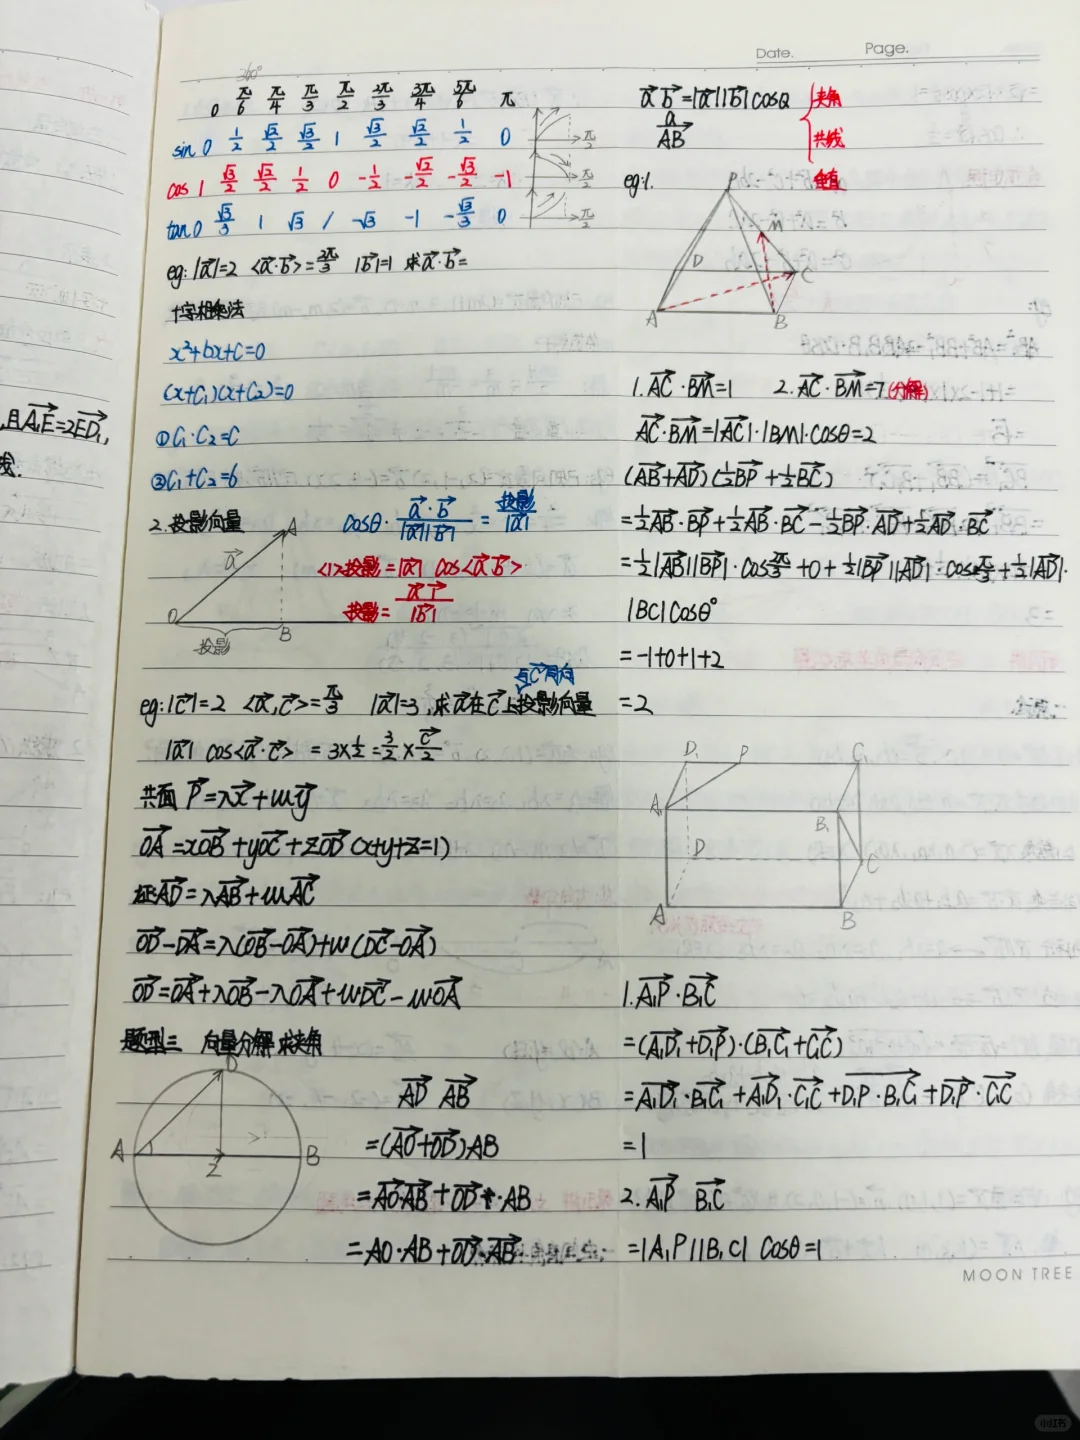 Date. Page.
360°
0 π/6 π/4 π/3 π/2 2π/3 3π/4 5π/6 π
sin 0 1/2 √2/2 √3/2 1 √3/2 √2/2 1/2 0
cos 1 √3/2 √2/2 1/2 0 -1/2 -√2/2 -√3/2 -1
tan 0 √3/3 1 √3 / -√3 -1 -√3/3 0
π/2
π/2
π/2
eg: |a⃗|=2 <a⃗·b⃗>=2π/3 |b⃗|=1 求a⃗·b⃗=
十字相乘法
x²+bx+c=0
(x+C₁)(x+C₂)=0
①C₁·C₂=C
②C₁+C₂=6
2.投影向量
cosθ·a⃗·b⃗/|a⃗||b⃗|=投影/|a⃗|
<1>投影=|a⃗| cos<a⃗·b⃗>
O a⃗ A B
投影
与c⃗同向
eg:|c⃗|=2 <a⃗,c⃗>=π/3 |a⃗|=3,求a⃗在c⃗上投影向量
|a⃗| cos<a⃗·c⃗> =3×1/2=3/2×c⃗/2
共面 P⃗=λx⃗+uy⃗
OA⃗=xOB⃗+yOC⃗+zOD⃗(x+y+z=1)
证AD⃗=λAB⃗+uAC⃗
OD⃗-DA⃗=λ(OB⃗-OA⃗)+u(DC⃗-OA⃗)
OD⃗=OA⃗+λOB⃗-λOA⃗+uDC⃗-uOA⃗
题型三 向量分解求夹角
A D B Z
AD⃗ AB⃗
=(AO⃗+OD⃗)AB
=AO⃗·AB⃗+OD⃗+·AB
=AO·AB+OD⃗·AB⃗
a⃗b⃗=|a⃗||b⃗|cosQ
a
AB⃗
夹角
共线
垂直
eg:1.
P M D C A B
1.AC⃗·BM⃗=1 2.AC⃗·BM⃗=?(分解)
AC⃗·BM⃗=|AC⃗|·|BM|·cosθ=2
(AB⃗+AD⃗)(1/2BP⃗+1/2BC⃗)
=1/2AB⃗·BP⃗+1/2AB⃗·BC⃗-1/2BP⃗·AD⃗+1/2AD⃗·BC⃗
=1/2|AB⃗||BP⃗|·cos2π/3+0+1/2|BP⃗||AD⃗|·cosπ/3+1/2|AD⃗|·
|BC|cosθ°
=-1+0+1+2
=2
D₁ P C₁ A₁ B₁ D C A B
1.A₁P⃗·B₁C⃗
=(A₁D₁⃗+D₁P⃗)·(B₁C₁⃗+C₁C⃗)
=A₁D₁⃗·B₁C₁⃗+A₁D₁⃗·C₁C⃗+D₁P⃗·B₁C₁⃗+D₁P⃗·C₁C⃗
=1
2.A₁P⃗ B₁C⃗
=|A₁P||B₁C| cosθ=1
MOON TREE
,且A₁E⃗=2ED₁⃗,
线.